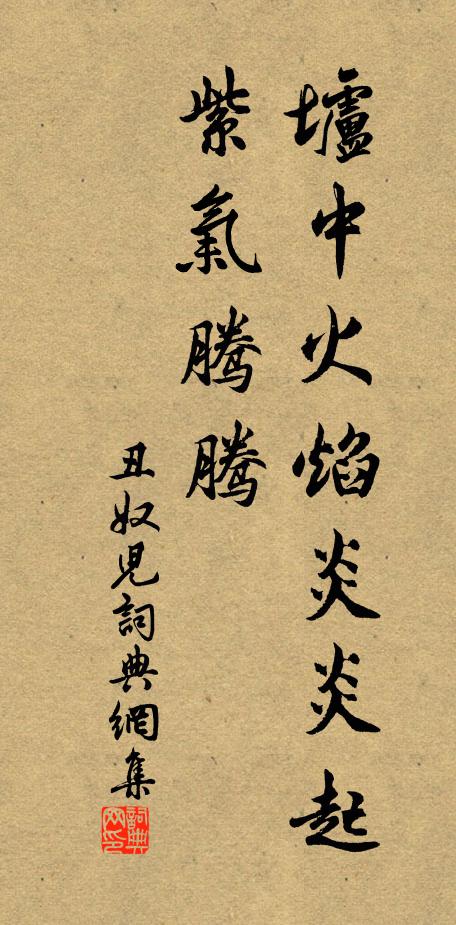 壚中火焰炎炎起
紫氣騰騰
丑奴兒詞典網集
詞典網印